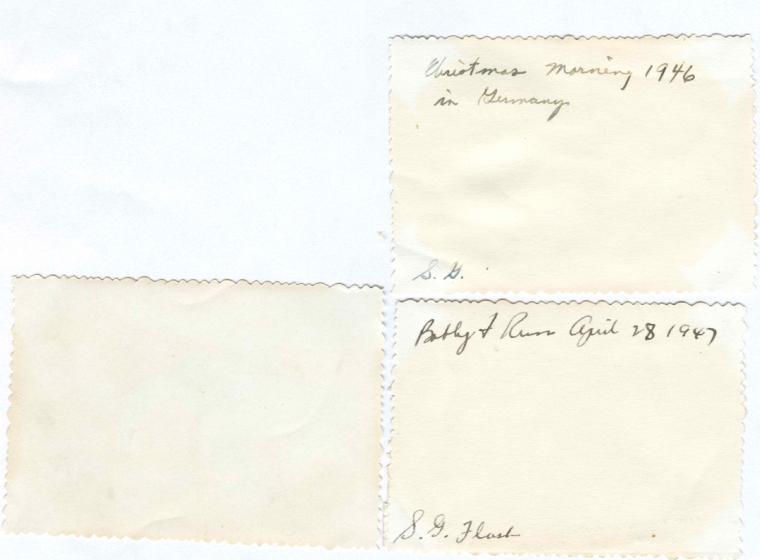 Christmas Morning 1946
in Germany
S. G.
Bobby & Russ April 28 1947
S. G. Flash